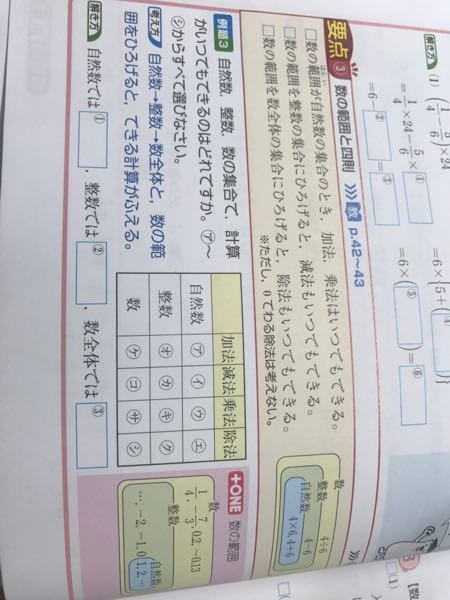 解き方 (1)
×24
= 1/4 ×24− 5/6 × ①
=6− ② = ③
=6×{5+(
=6×( ⑤ ) = ⑥
要点 ③ 数の範囲と四則 教 p.42〜43
□数の範囲が自然数の集合のとき，加法，乗法はいつでもできる。
□数の範囲を整数の集合にひろげると，減法もいつでもできる。
□数の範囲を数全体の集合にひろげると，除法もいつでもできる。
※ただし，0でわる除法は考えない。
数 4÷6
整数 4−6
自然数 4×6，4+6
例題3 自然数，整数，数の集合で，計算
がいつでもできるのはどれですか。㋐〜
㋛からすべて選びなさい。
考え方 自然数→整数→数全体と，数の範
囲をひろげると，できる計算がふえる。
加法 減法 乗法 除法
自然数 ㋐ ㋑ ㋒ ㋓
整数 ㋔ ㋕ ㋖ ㋗
数 ㋘ ㋙ ㋚ ㋛
解き方 自然数では ① ，整数では ② ，数全体では ③
+ONE 数の範囲
数
1/4，−7/3，0.2，−0.13
整数
…，−2，−1，0
自然数
1，2，…